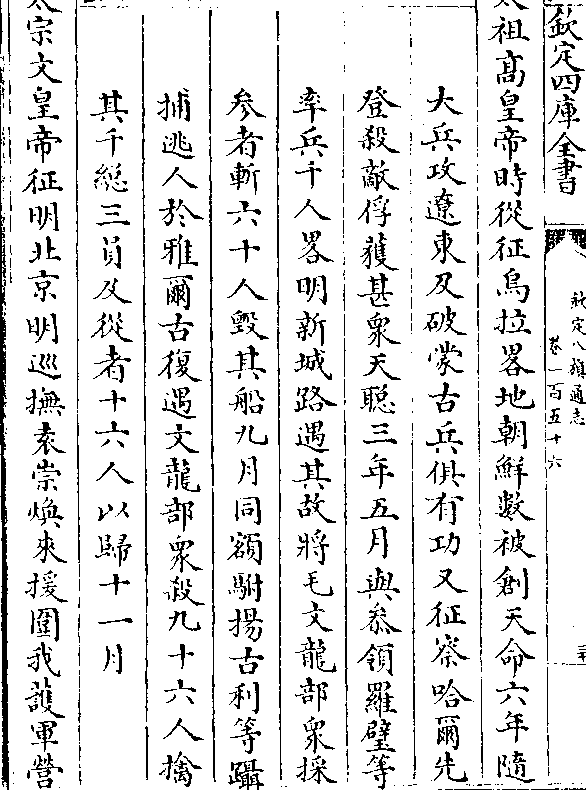 欽定四庫全書
欽定八旗通志
卷一百五十六
太祖高皇帝時從征烏拉畧地朝鮮數被創天命六年隨
大兵攻遼東及破蒙古兵俱有功又征察哈爾先
登殺敵俘獲甚衆天聰三年五月與叅領羅璧等
率兵千人畧明新城路遇其故將毛文龍部衆採
參者斬六十人毀其船九月同額駙揚古利等躡
捕逃人於雅爾古復遇文龍部衆殺九十六人擒
其千總三員及從者十六人以歸十一月
太宗文皇帝征明北京明巡撫袁崇煥來援圍我護軍營